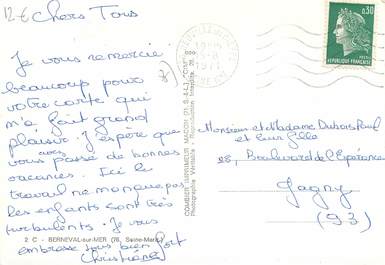 12€
Chers Tous
Je vous remercie
beaucoup pour
votre carte qui
m'a fait grand
plaisir. J'espère que
vous avez passé de bonnes
vacances. Ici le
travail ne manque pas
les enfants sont très
turbulents. Je vous
embrasse tous bien fort
Christiane
2 C - BERNEVAL-sur-MER (76, Seine-Mar.)
COMBIER IMPRIMEUR MACON
Photographie Véritable - Reproduction Interdite
1971
0,30
REPUBLIQUE FRANÇAISE
Monsieur et Madame Dubois Paul
et leur fille
28, Boulevard de l'Espérance
Gagny
(93)